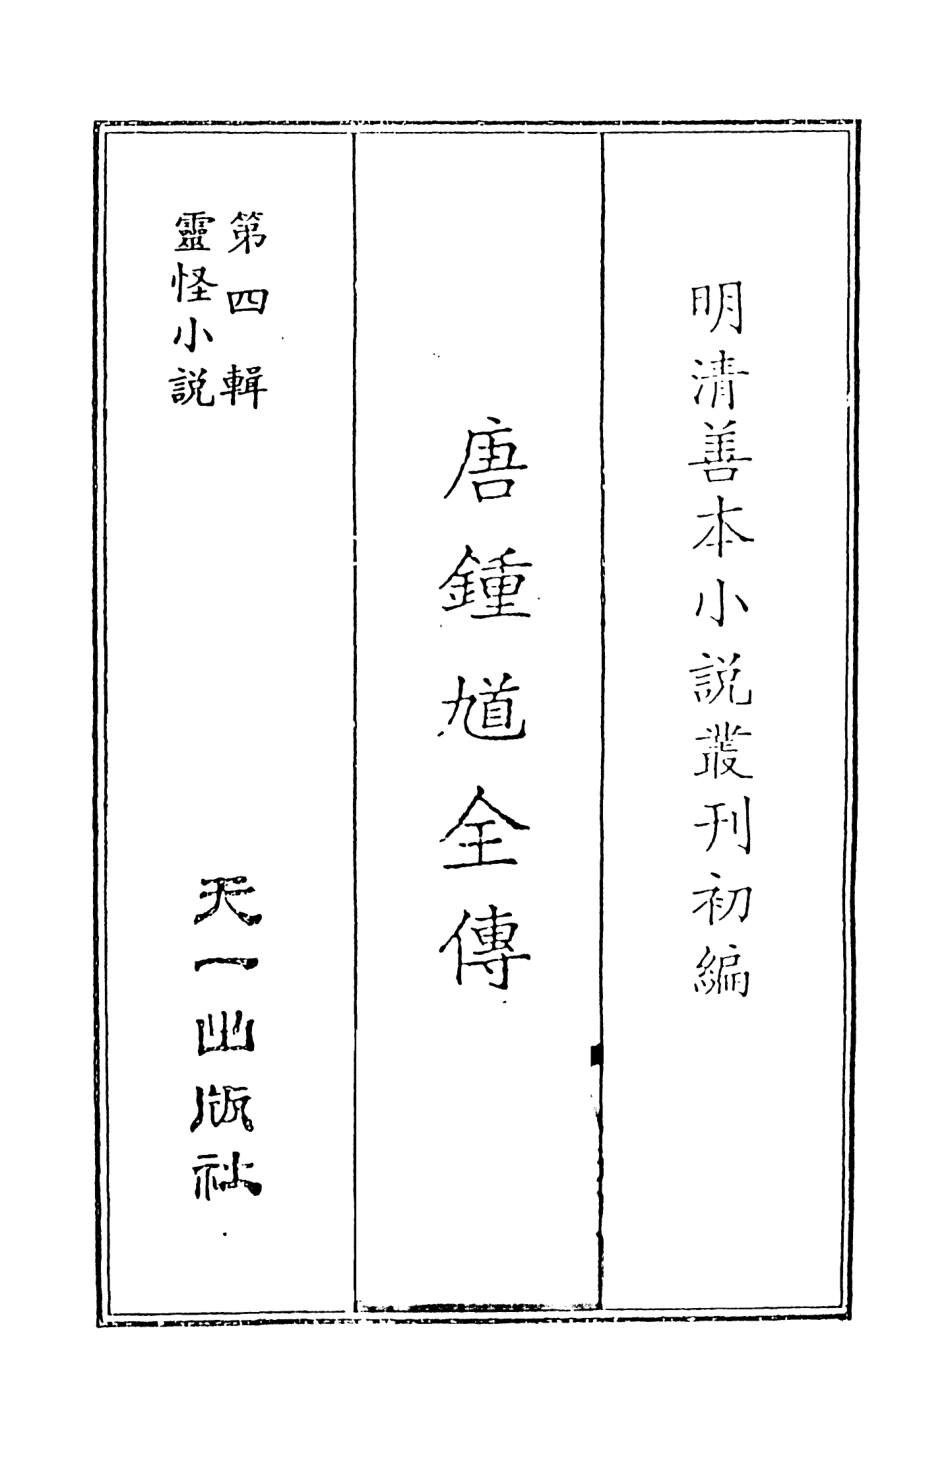 明清善本小説叢刊初編
唐鍾馗全傳
第四輯
靈怪小説
天一出版社